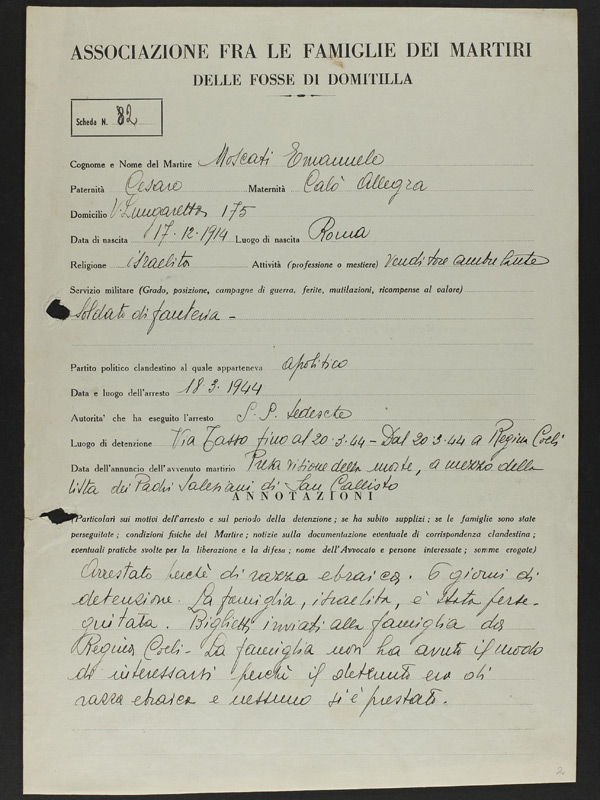 ASSOCIAZIONE FRA LE FAMIGLIE DEI MARTIRI
DELLE FOSSE DI DOMITILLA
Scheda N. 82
Cognome e Nome del Martire Moscati Emanuele
Paternità Cesare Maternità Calò Allegra
Domicilio V. Lungaretta 175
Data di nascita 17.12.1914 Luogo di nascita Roma
Religione israelita Attività (professione o mestiere) Venditore ambulante
Servizio militare (Grado, posizione, campagne di guerra, ferite, mutilazioni, ricompense al valore)
Soldato di fanteria -
Partito politico clandestino al quale apparteneva apolitico
Data e luogo dell'arresto 18.3.1944
Autorita' che ha eseguito l'arresto S.P. tedesche
Luogo di detenzione Via Tasso fino al 20.3.44 - Dal 20.3.44 a Regina Coeli
Data dell'annuncio dell'avvenuto martirio Presa visione della morte, a mezzo della
lista dei Padri Salesiani di San Callisto
ANNOTAZIONI
(Particolari sui motivi dell'arresto e sul periodo della detenzione; se ha subito supplizi; se le famiglie sono state
perseguitate; condizioni fisiche del Martire; notizie sulla documentazione eventuale di corrispondenza clandestina;
eventuali pratiche svolte per la liberazione e la difesa; nome dell'Avvocato e persone interessate; somme erogate)
Arrestato perchè di razza ebraica. 6 giorni di
detenzione. La famiglia, israelita, è stata perse-
guitata. Biglietti inviati alla famiglia da
Regina Coeli - La famiglia non ha avuto il modo
di interessarsi perchè il detenuto era di
razza ebraica e nessuno si è prestato.
2